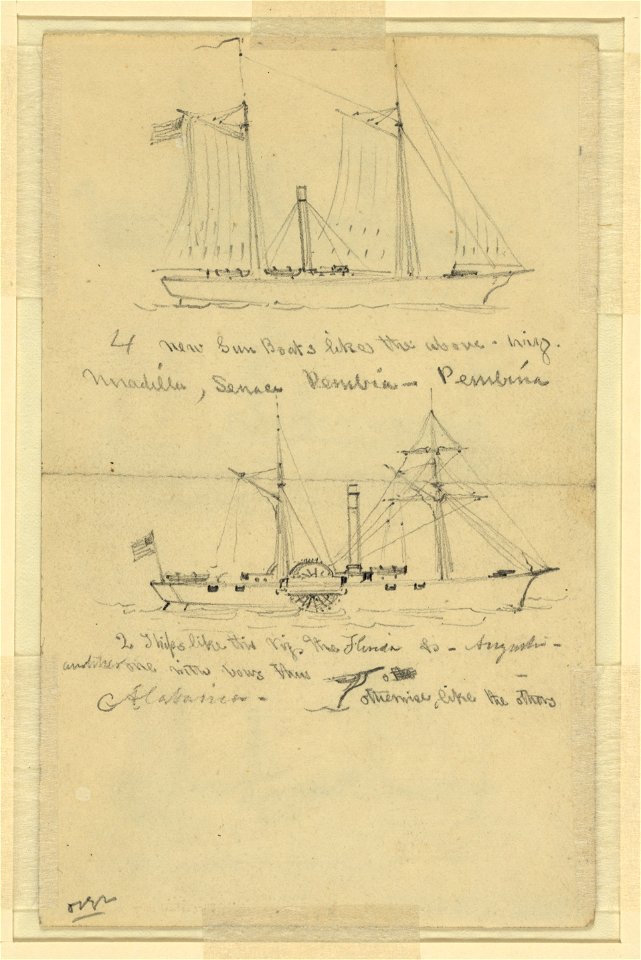 4 new Gun Boats likes the above - viz.
Unadilla, Seneca Pembia - Pembina
2 Ships like this viz. the Florida & - Augusta -
another one with bows thus
Alabama - otherwise, like the others